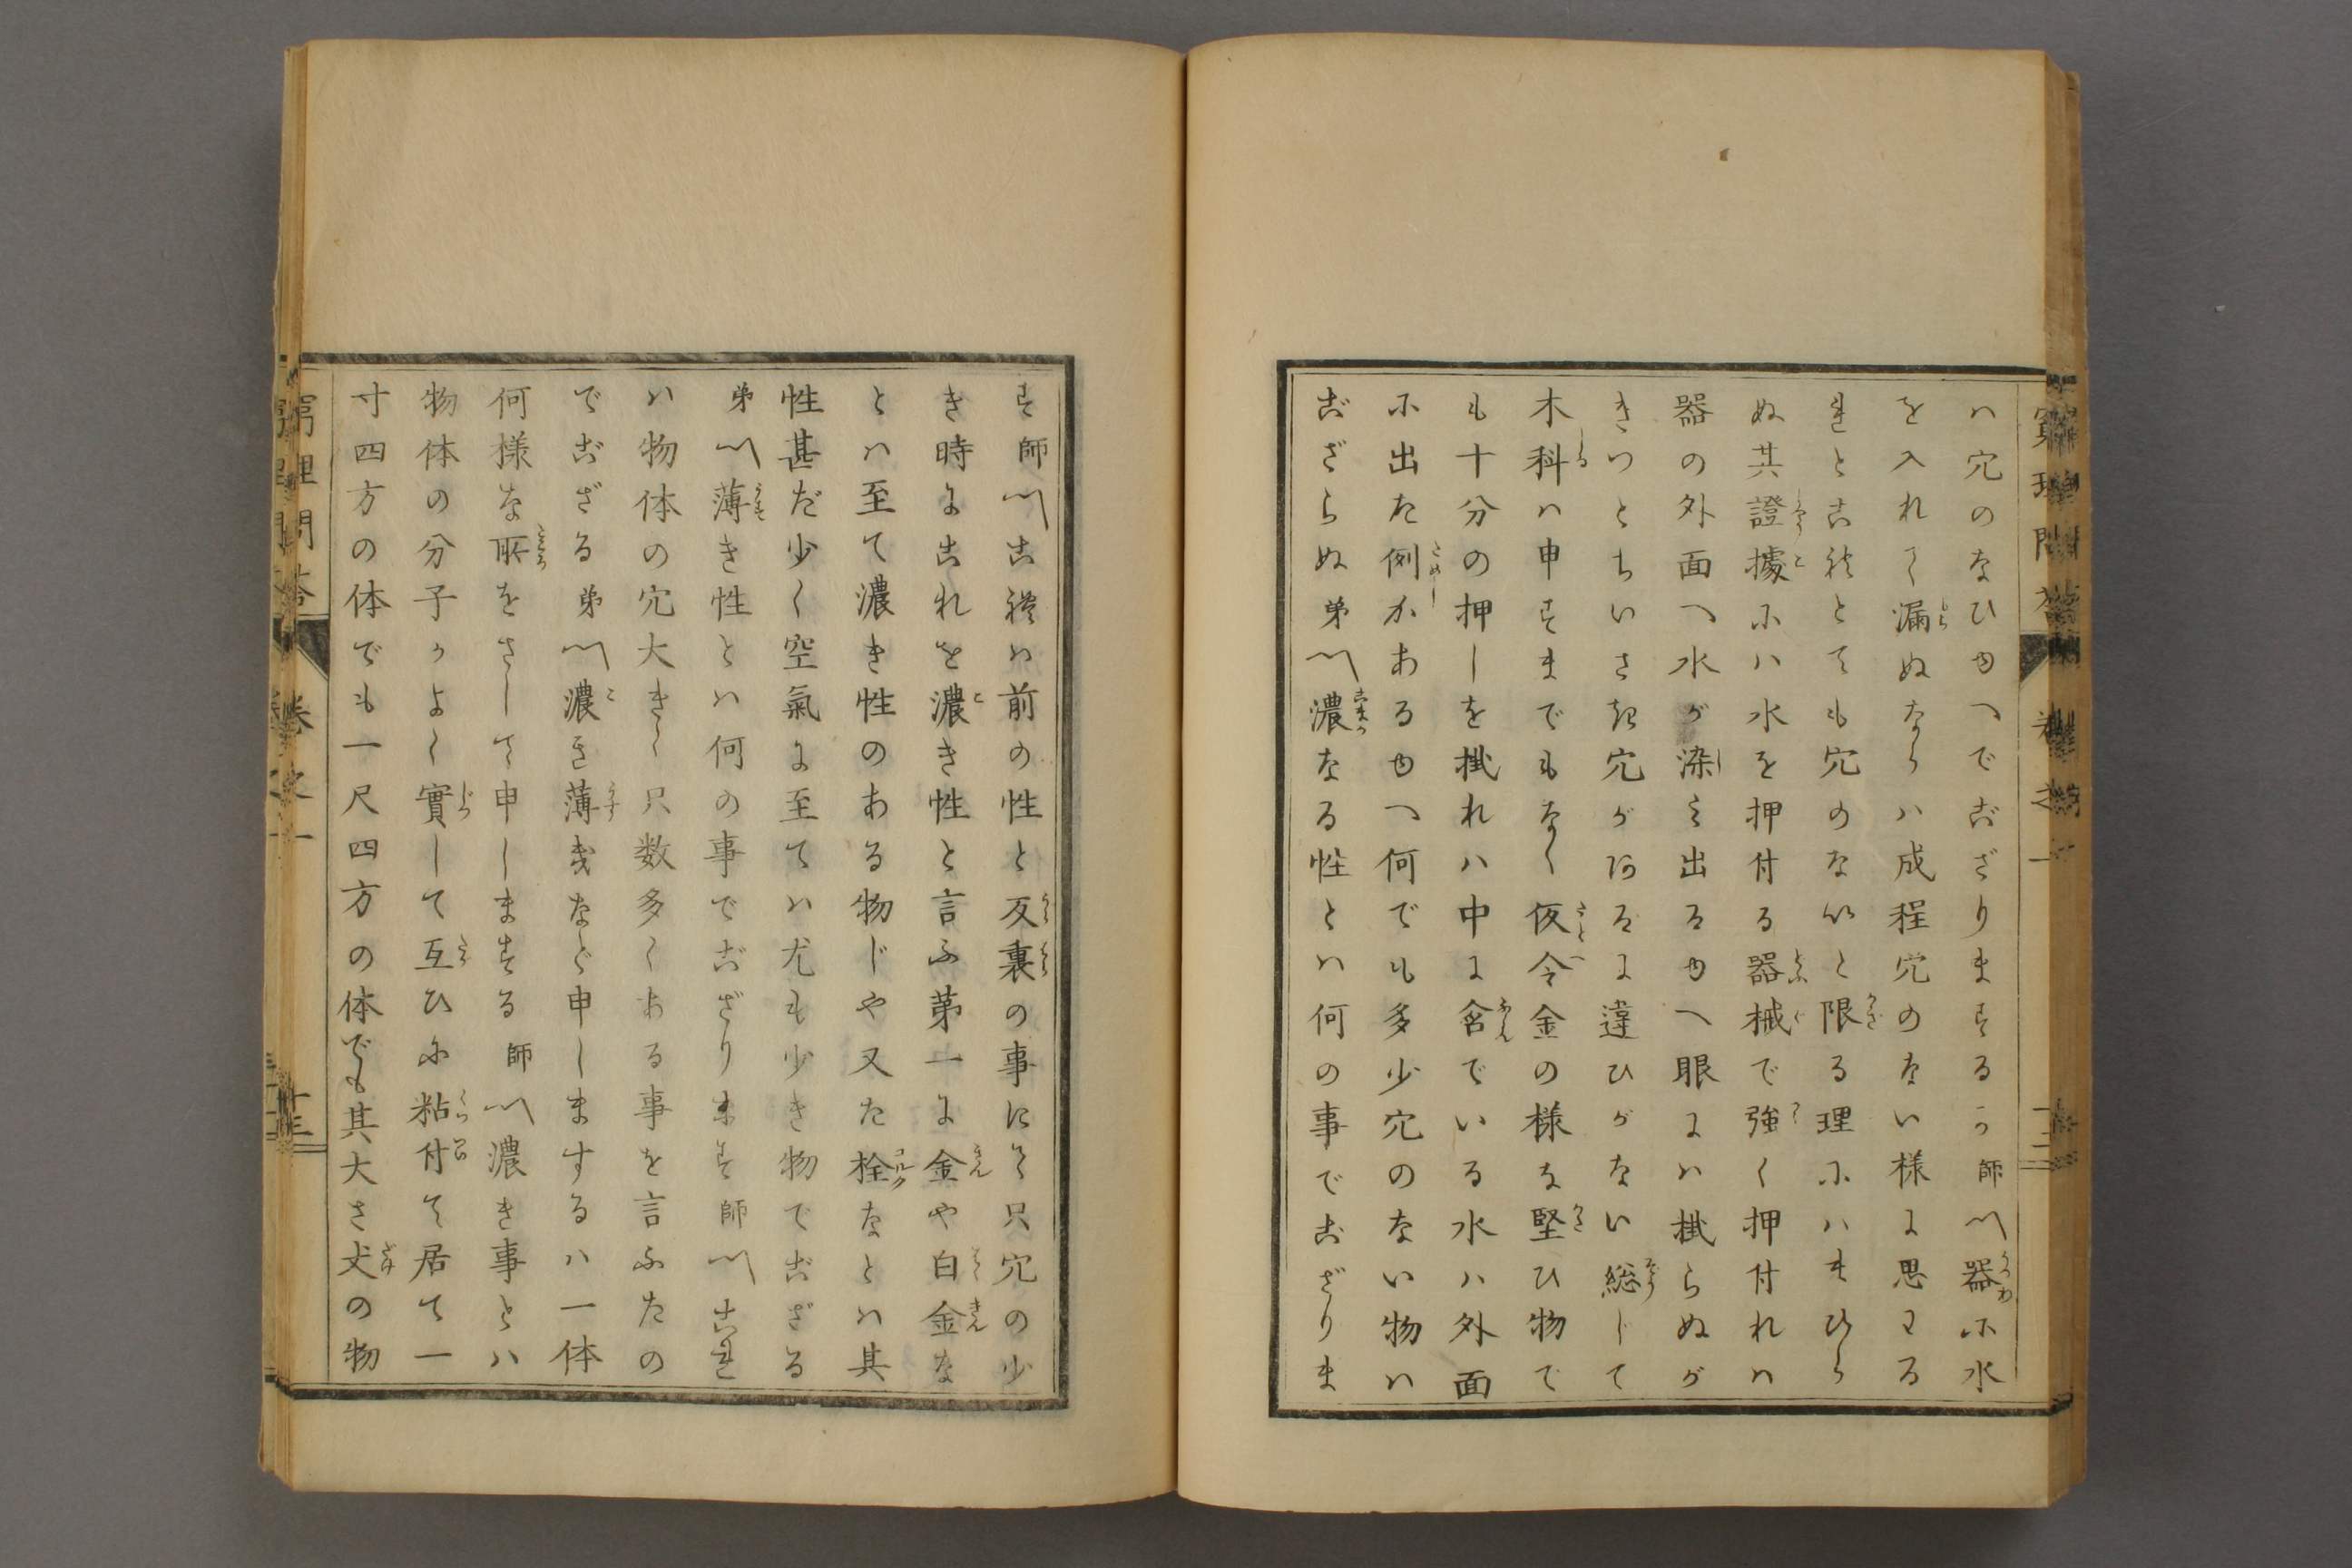 ハ穴のなひゆへでござりまするか師〽器に水
を入れて漏ぬならハ成程穴のない様に思わる
れとこれとても穴のないと限る理にハまひら
ぬ其證據にハ水を押付る器械で強く押付れハ
器の外面へ水が染み出るゆへ眼にハ掛らぬが
きつとちいさな穴があるに違ひがない総じて
木科ハ申すまでもなく仮令金の様な堅ひ物で
も十分の押しを掛れハ中に含でいる水ハ外面
に出た例かあるゆへ何でも多少穴のない物ハ
ござらぬ弟〽濃なる性とハ何の事でござりま
す師〽これハ前の性と反裏の事にて只穴の少
き時にこれを濃き性と言ふ第一に金や白金な
とハ至て濃き性のある物じや又た栓なとハ其
性甚だ少く空氣に至てハ尤も少き物でござる
弟〽薄き性とハ何の事でござります師〽これ
ハ物体の穴大きく只数多くある事を言ふたの
でござる弟〽濃き薄きなど申しまするハ一体
何様な所をさして申しまする師〽濃き事とハ
物体の分子かよく實して互ひに粘付て居て一
寸四方の体でも一尺四方の体でも其大さ丈の物
窮理問答 巻之一 十二
窮理問答 巻之一 十三